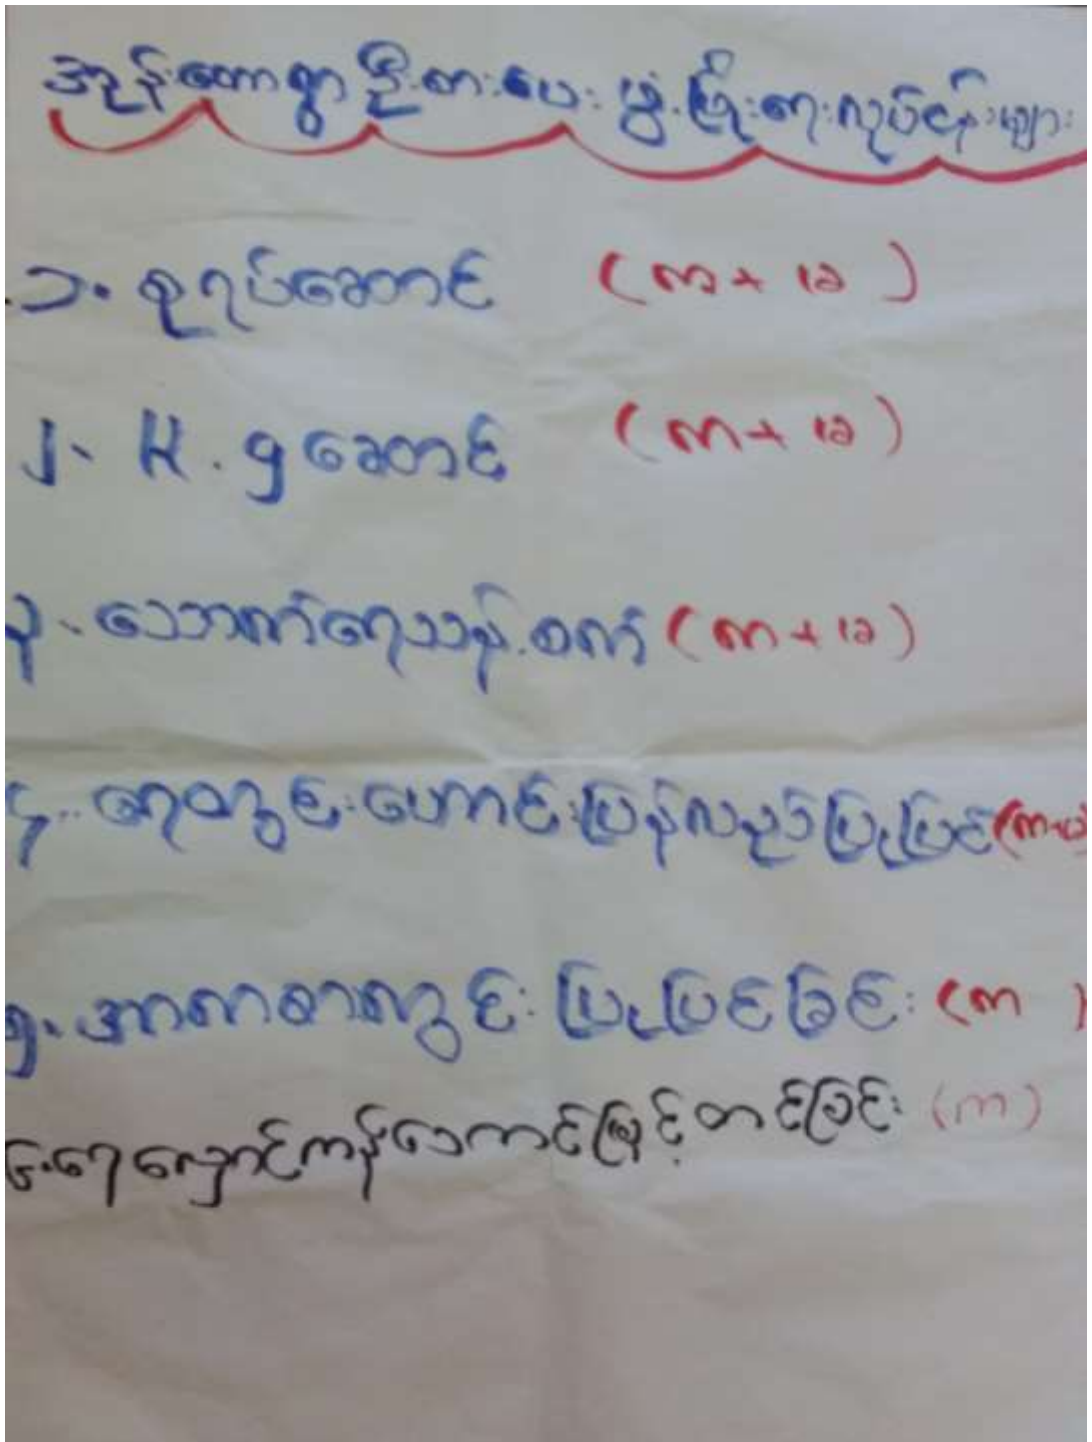 အုန်းတောရွာ ဦးစားပေး ဖွံ့ဖြိုးရေးလုပ်ငန်းများ
၁. စုရပ်ဆောင် (က + ခ )
၂. မူ.ဒွဆောင် (က + ခ )
၃. သောက်ရေသန့်စက် (က + ခ )
၄. ရေတွင်းဟောင်းပြန်လည်ပြုပြင် (က+ခ)
၅. အာကာစာကွင်း ပြုပြင်ခြင်း (က )
၆. ရေလှောင်ကန်ဘောင်မြှင့်တင်ခြင်း (က)